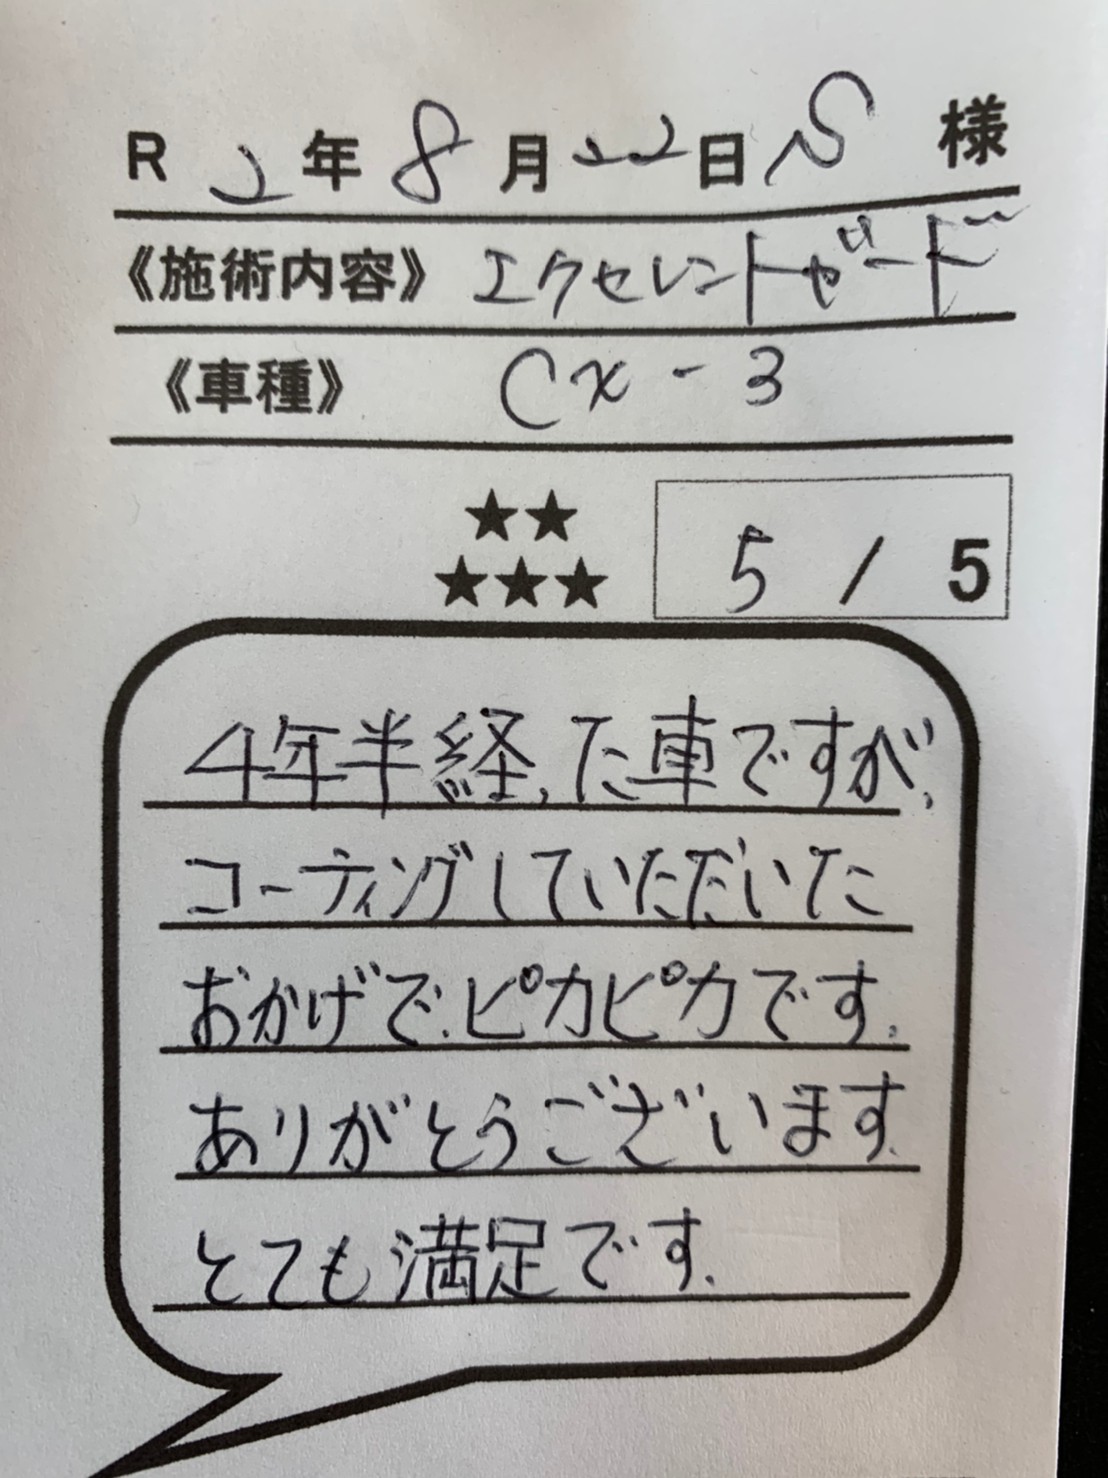 R 2年8月22日 S 様
《施術内容》 エクセレントガード
《車種》 CX-3
★★
★★★ 5 / 5
4年半経った車ですが、
コーティングしていただいた
おかげで、ピカピカです。
ありがとうございます。
とても満足です。